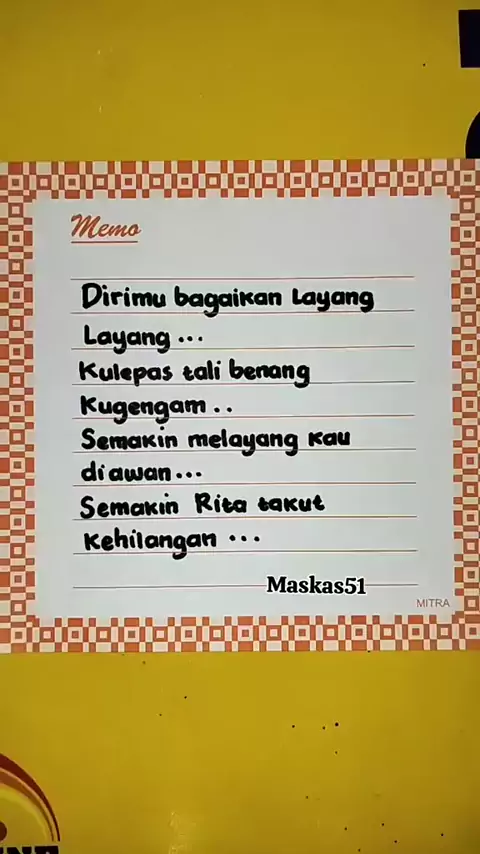 Memo
Dirimu bagaikan Layang
Layang...
Kulepas tali benang
Kugengam..
Semakin melayang kau
diawan...
Semakin Rita takut
Kehilangan...
Maskas51
MITRA